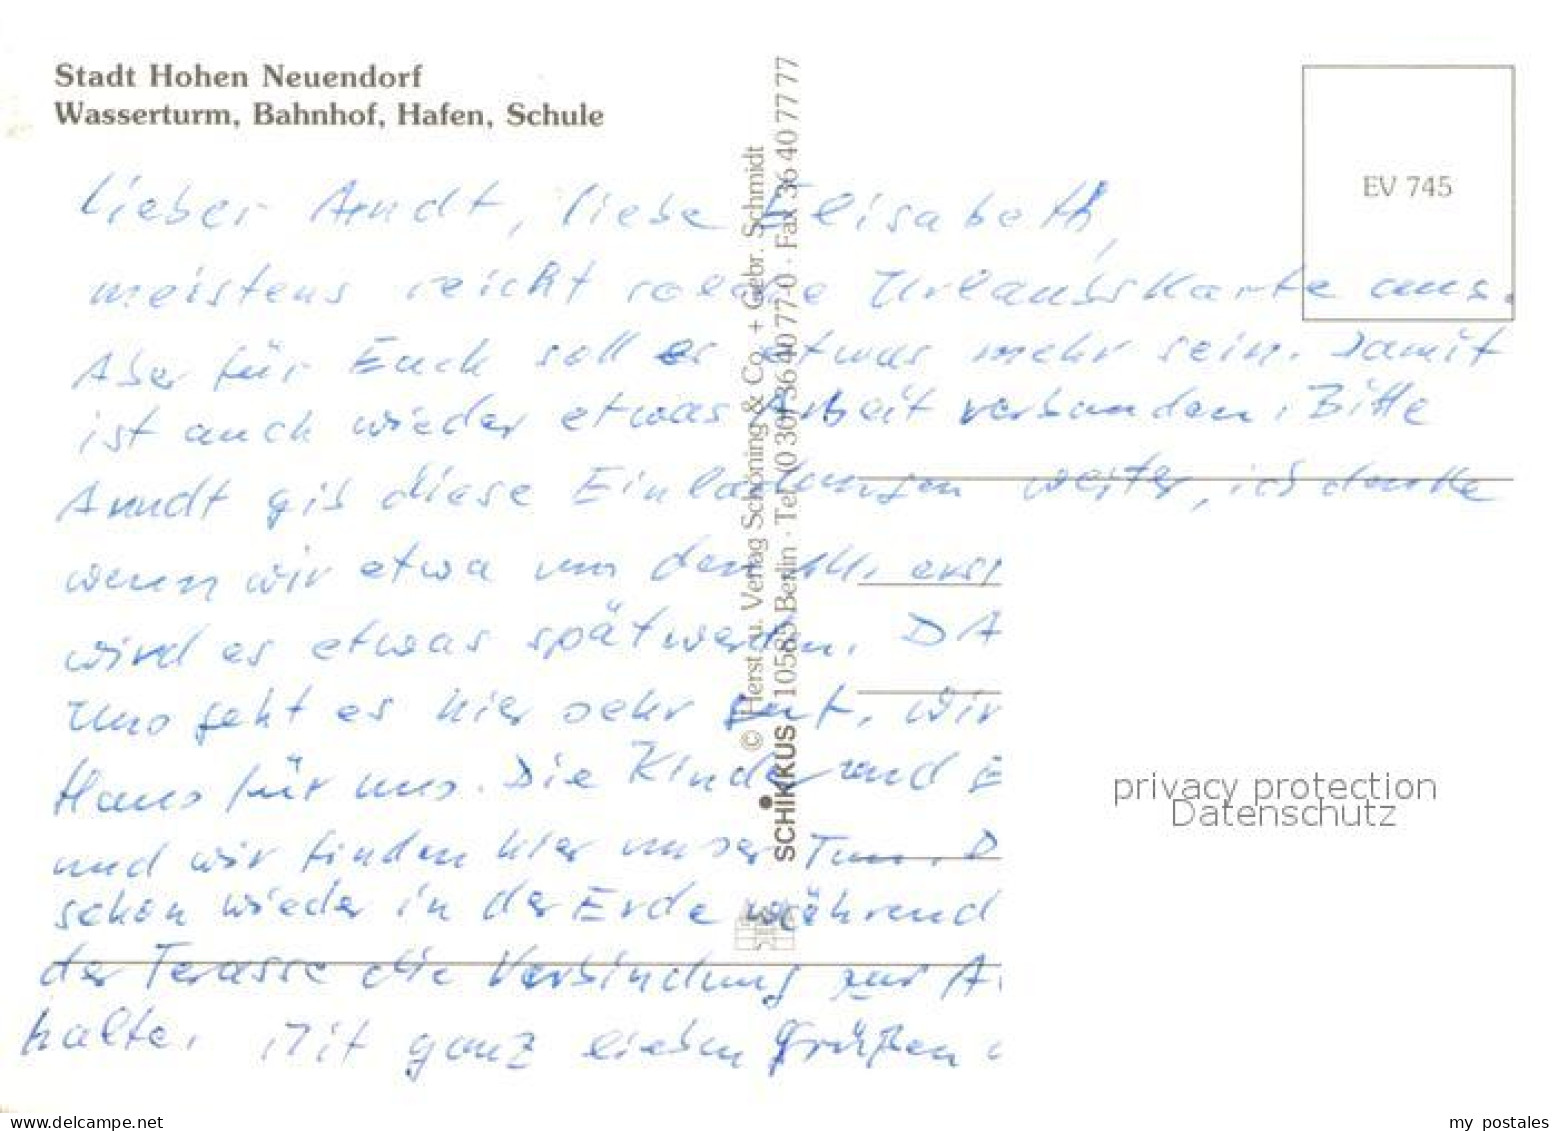 Stadt Hohen Neuendorf
Wasserturm, Bahnhof, Hafen, Schule
EV 745
Lieber Arndt, liebe Elisabeth,
meistens reicht solche Urlaubskarte aus.
Aber für Euch soll es etwas mehr sein. Damit
ist auch wieder etwas Arbeit verbunden. Bitte
Arndt gib diese Einladungen weiter, ich denke
wenn wir etwa um den 11. erst
wird es etwas spät werden. DA
Uns geht es hier sehr gut. Wir
Haus für uns. Die Kinder und E
und wir finden hier unser Tun. D
schon wieder in der Erde während
der Terasse die Verbindung zur A
halte. Mit ganz lieben Grüßen
© Herst. u. Verlag Schöning & Co. + Gebr. Schmidt
SCHIKKUS 10585 Berlin · Tel. (0 30) 36 40 77-0 · Fax 36 40 77 77
privacy protection
Datenschutz
delcampe.net
my_postales